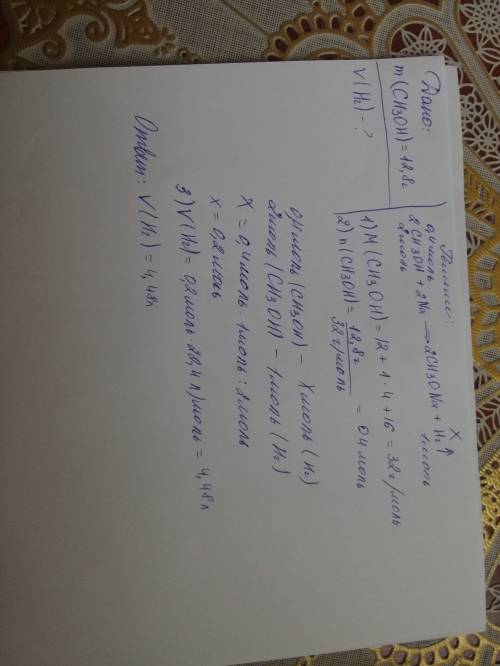 Дано:
m (CH3OH) = 12,8г
V (H2) - ?
Решение:
0,4 моль X
2CH3OH + 2Na → 2CH3ONa + H2↑
2моль 1моль
1) M (CH3OH) = 12 + 1 · 4 + 16 = 32 г/моль
2) n (CH3OH) = 12,8г / 32 г/моль = 0,4 моль
0,4 моль (CH3OH) - X моль (H2)
2 моль (CH3OH) - 1 моль (H2)
X = 0,4 моль · 1 моль : 2 моль
x = 0,2 моль
3) V (H2) = 0,2 моль · 22,4 л/моль = 4,48л
Ответ: V (H2) = 4,48л